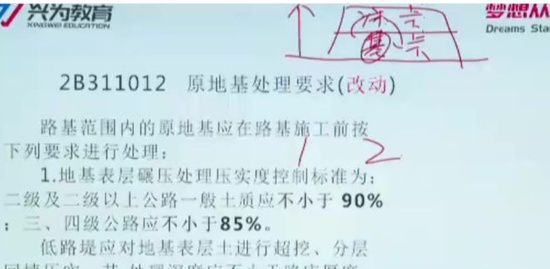 兴为教育
XINGWEI EDUCATION
梦想从
Dreams Star
基
2B311012 原地基处理要求(改动)
路基范围内的原地基应在路基施工前按
下列要求进行处理:
1 2
1.地基表层碾压处理压实度控制标准为:
二级及二级以上公路一般土质应不小于 90%
;三、四级公路应不小于85%。
低路堤应对地基表层土进行超挖、分层